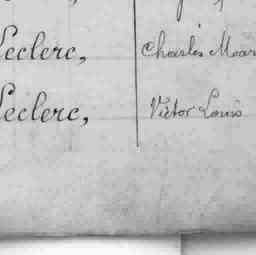 Leclerc, Charles
Leclerc, Victor Louis